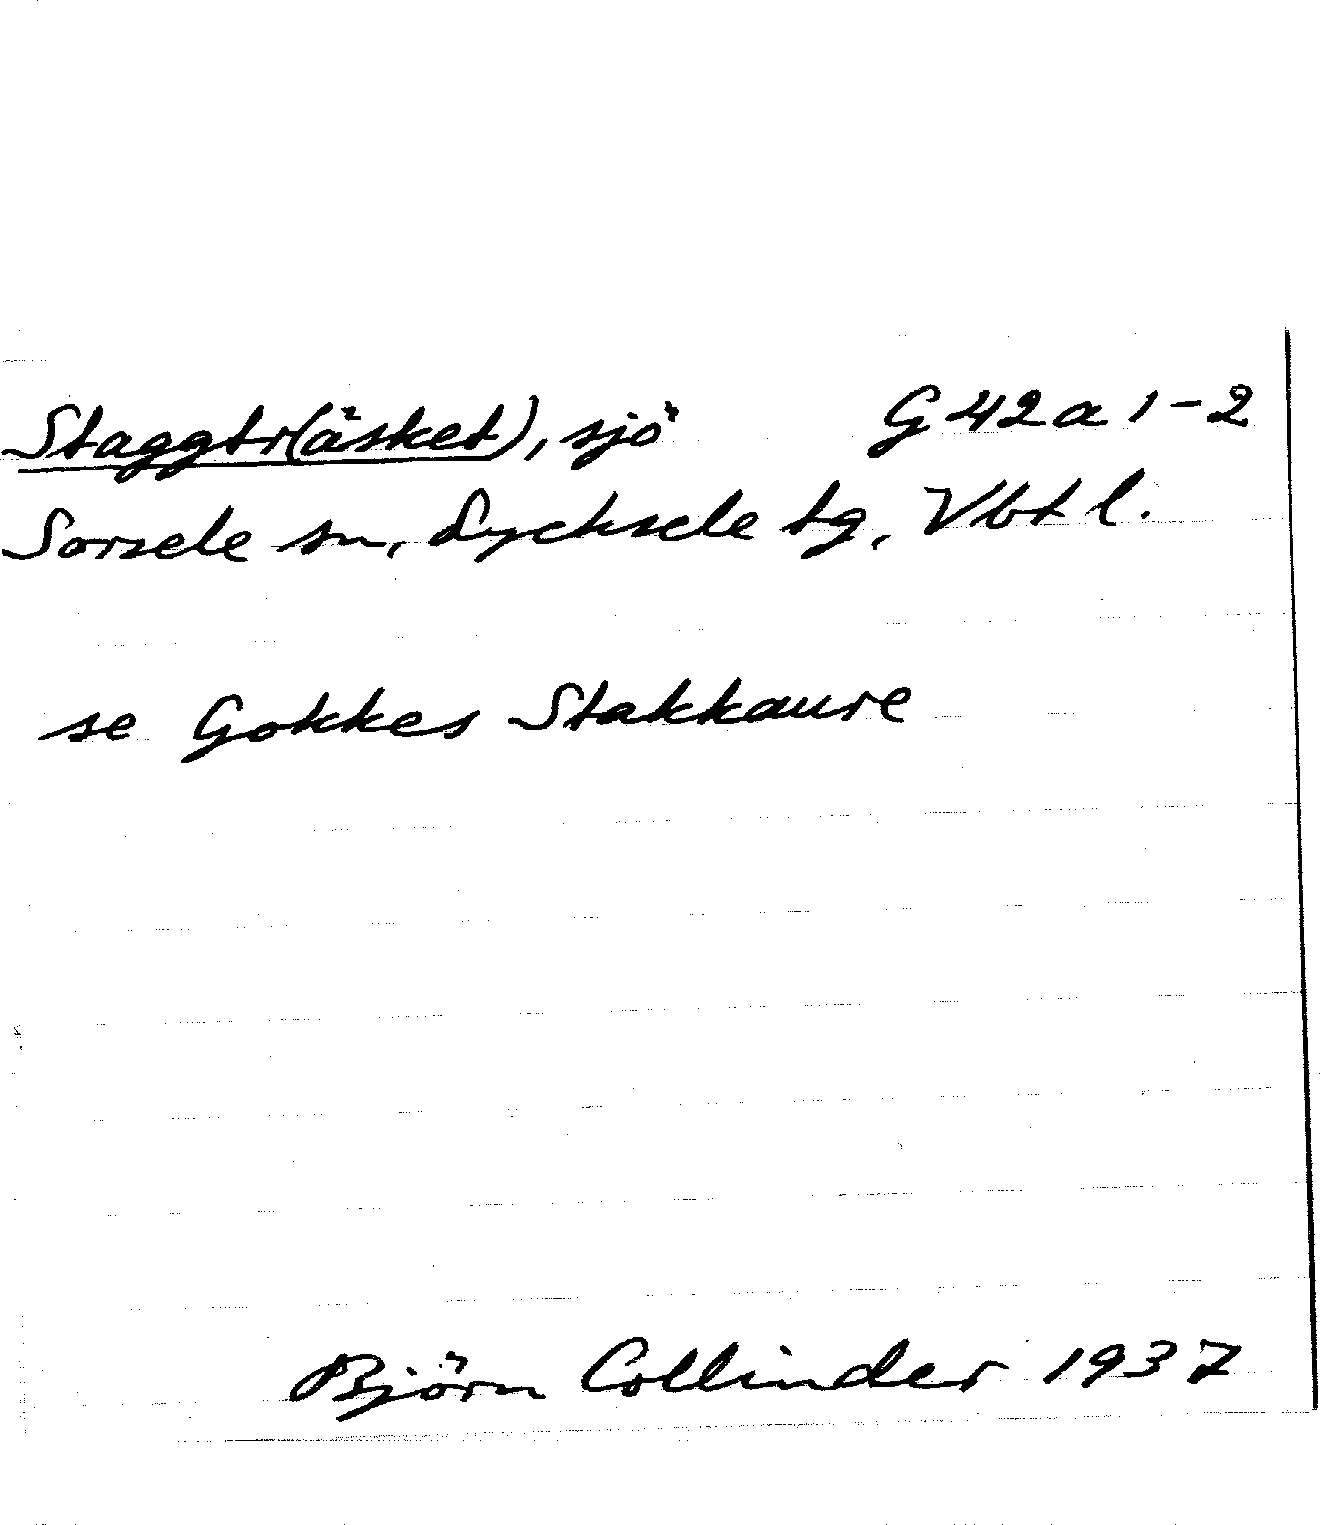 Staggtr(äsket), sjö G 42 a 1-2
Sorsele sn, Lycksele tg, Vbt l.
se Gokkes Stakkaure
Björn Collinder 1937